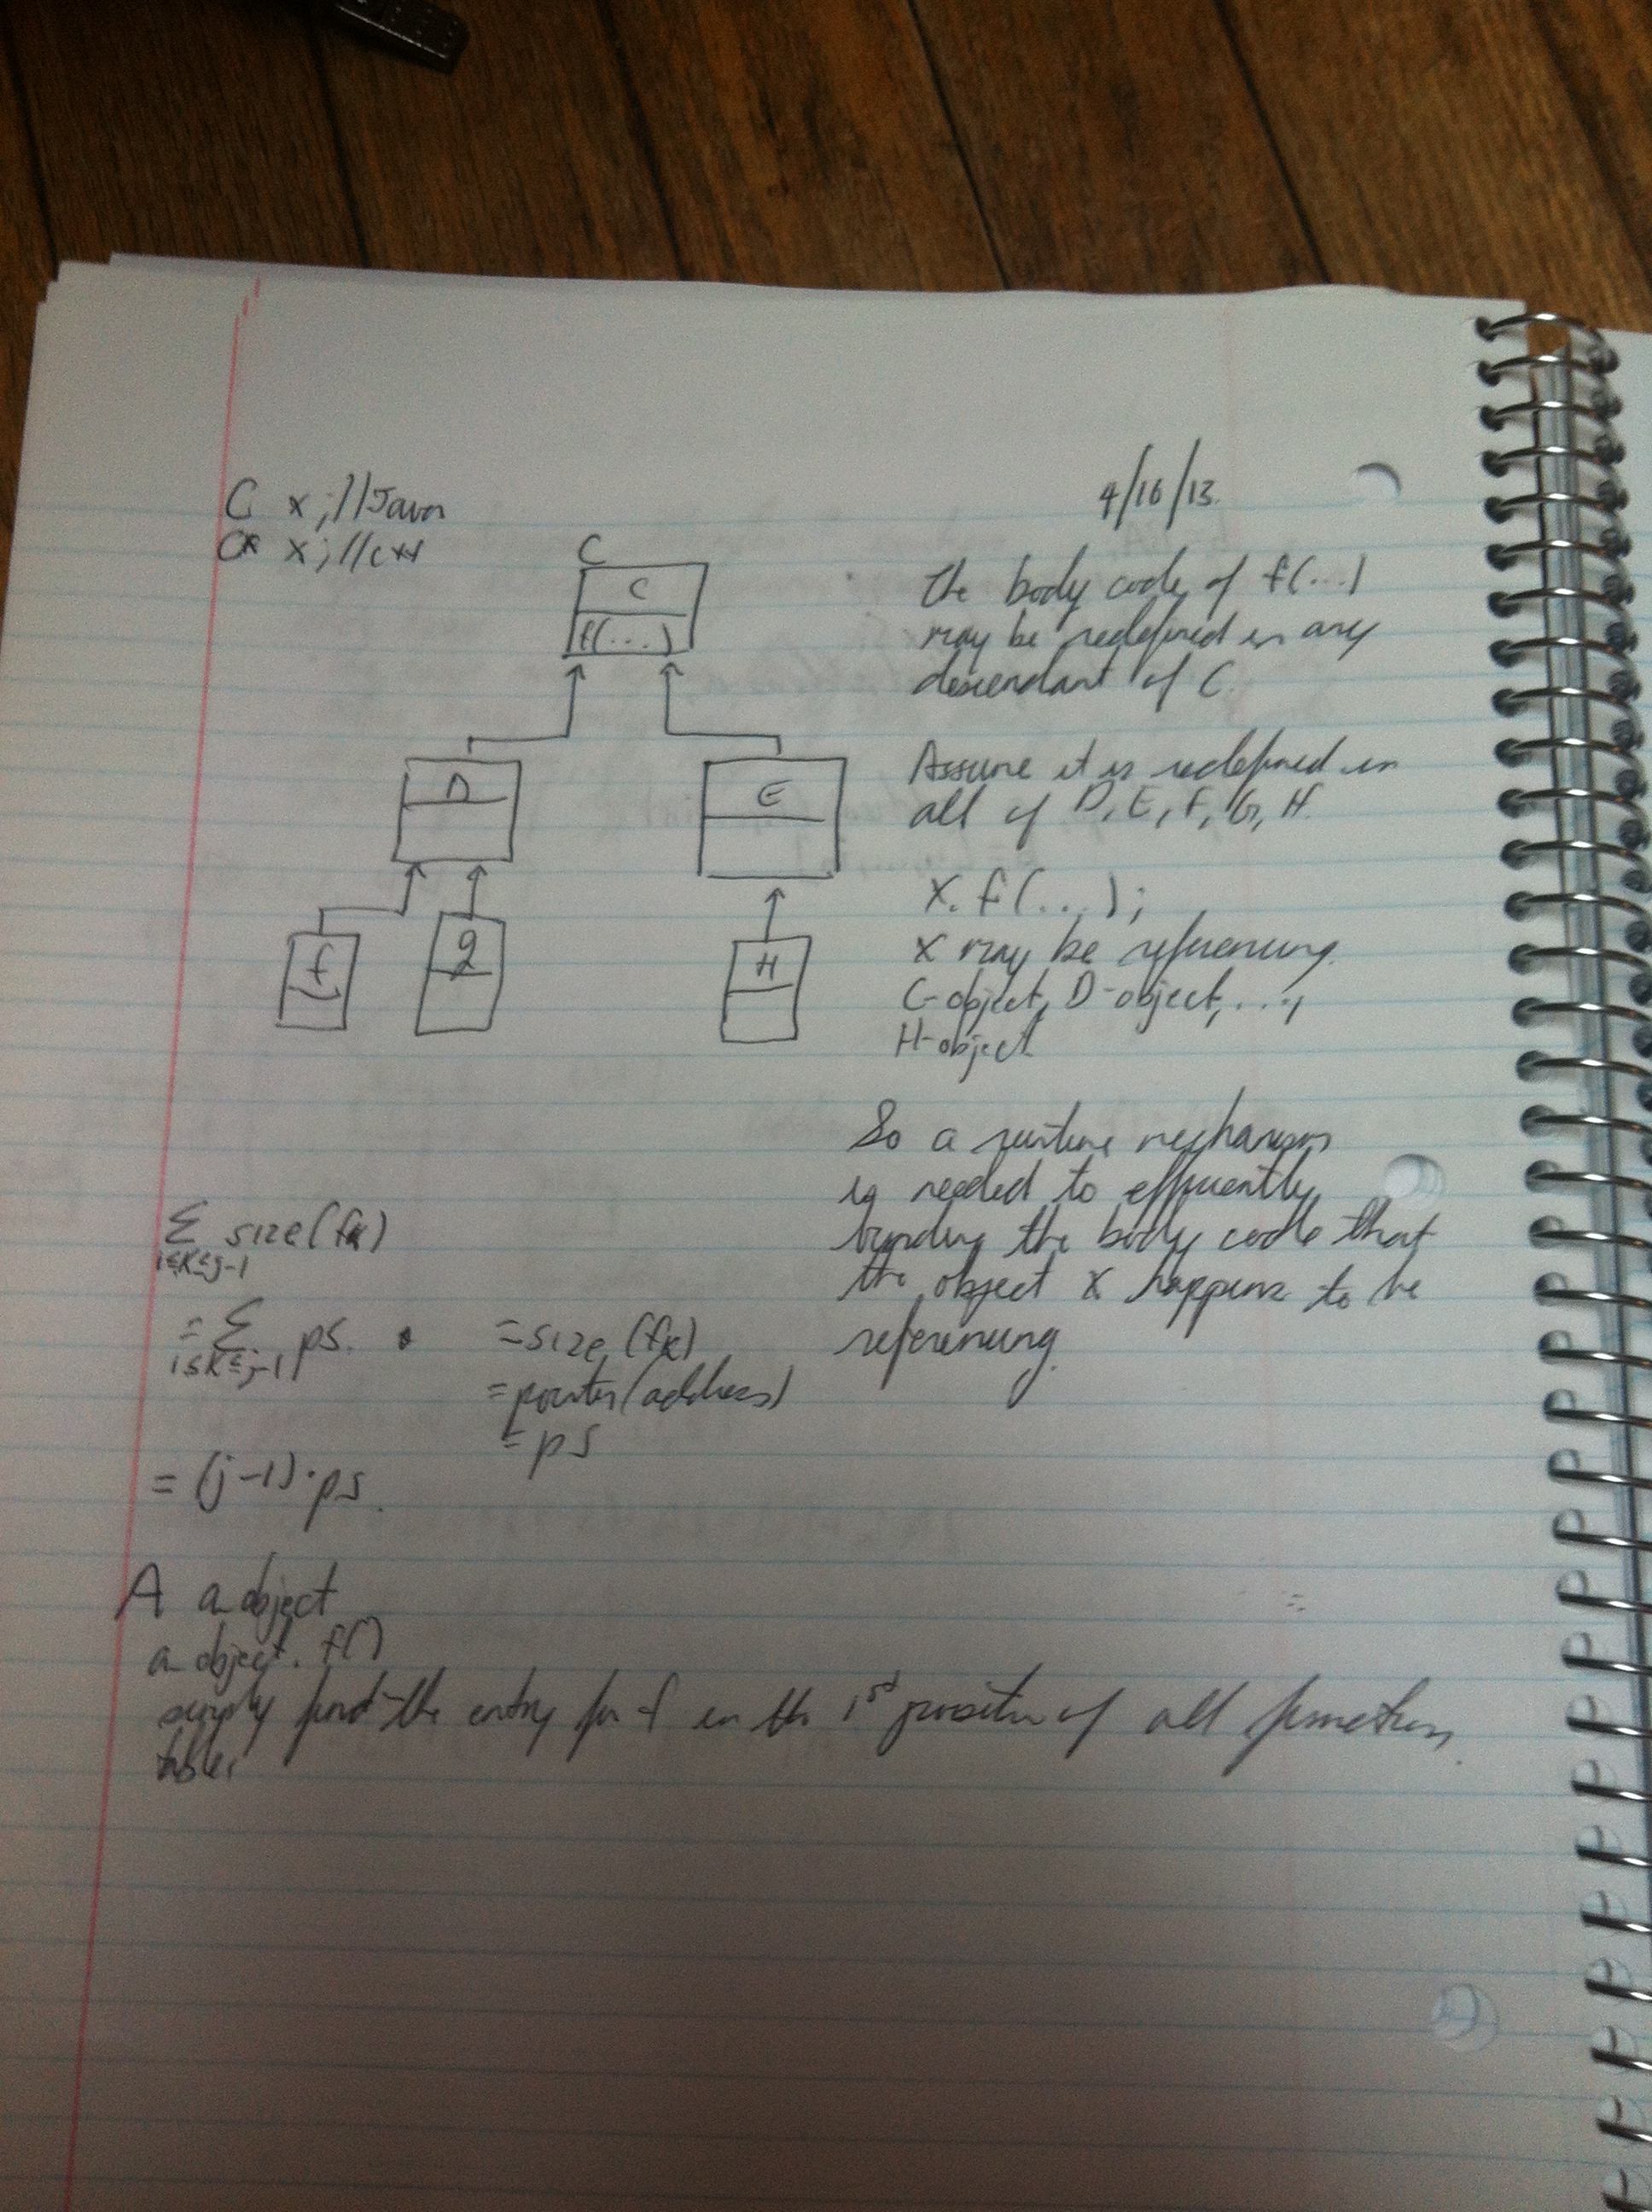 4/16/13
C x; //Java
C* x; //C++
C
C
f(...)
D
E
f
g
H
The body code of f(...)
may be redefined in any
descendant of C.
Assume it is redefined in
all of D, E, F, G, H.
x.f(...);
x may be referencing
C-object, D-object, ...,
H-object
So a runtime mechanism
is needed to efficiently
binding the body code that
the object x happens to be
referencing.
Σ size(fk)
1≤K≤j-1
= Σ ps.
1≤K≤j-1
= size(fk)
= pointer(address)
= ps
= (j-1)·ps.
A a_object
a_object.f()
simply find the entry for f in the 1st position of all function
tables